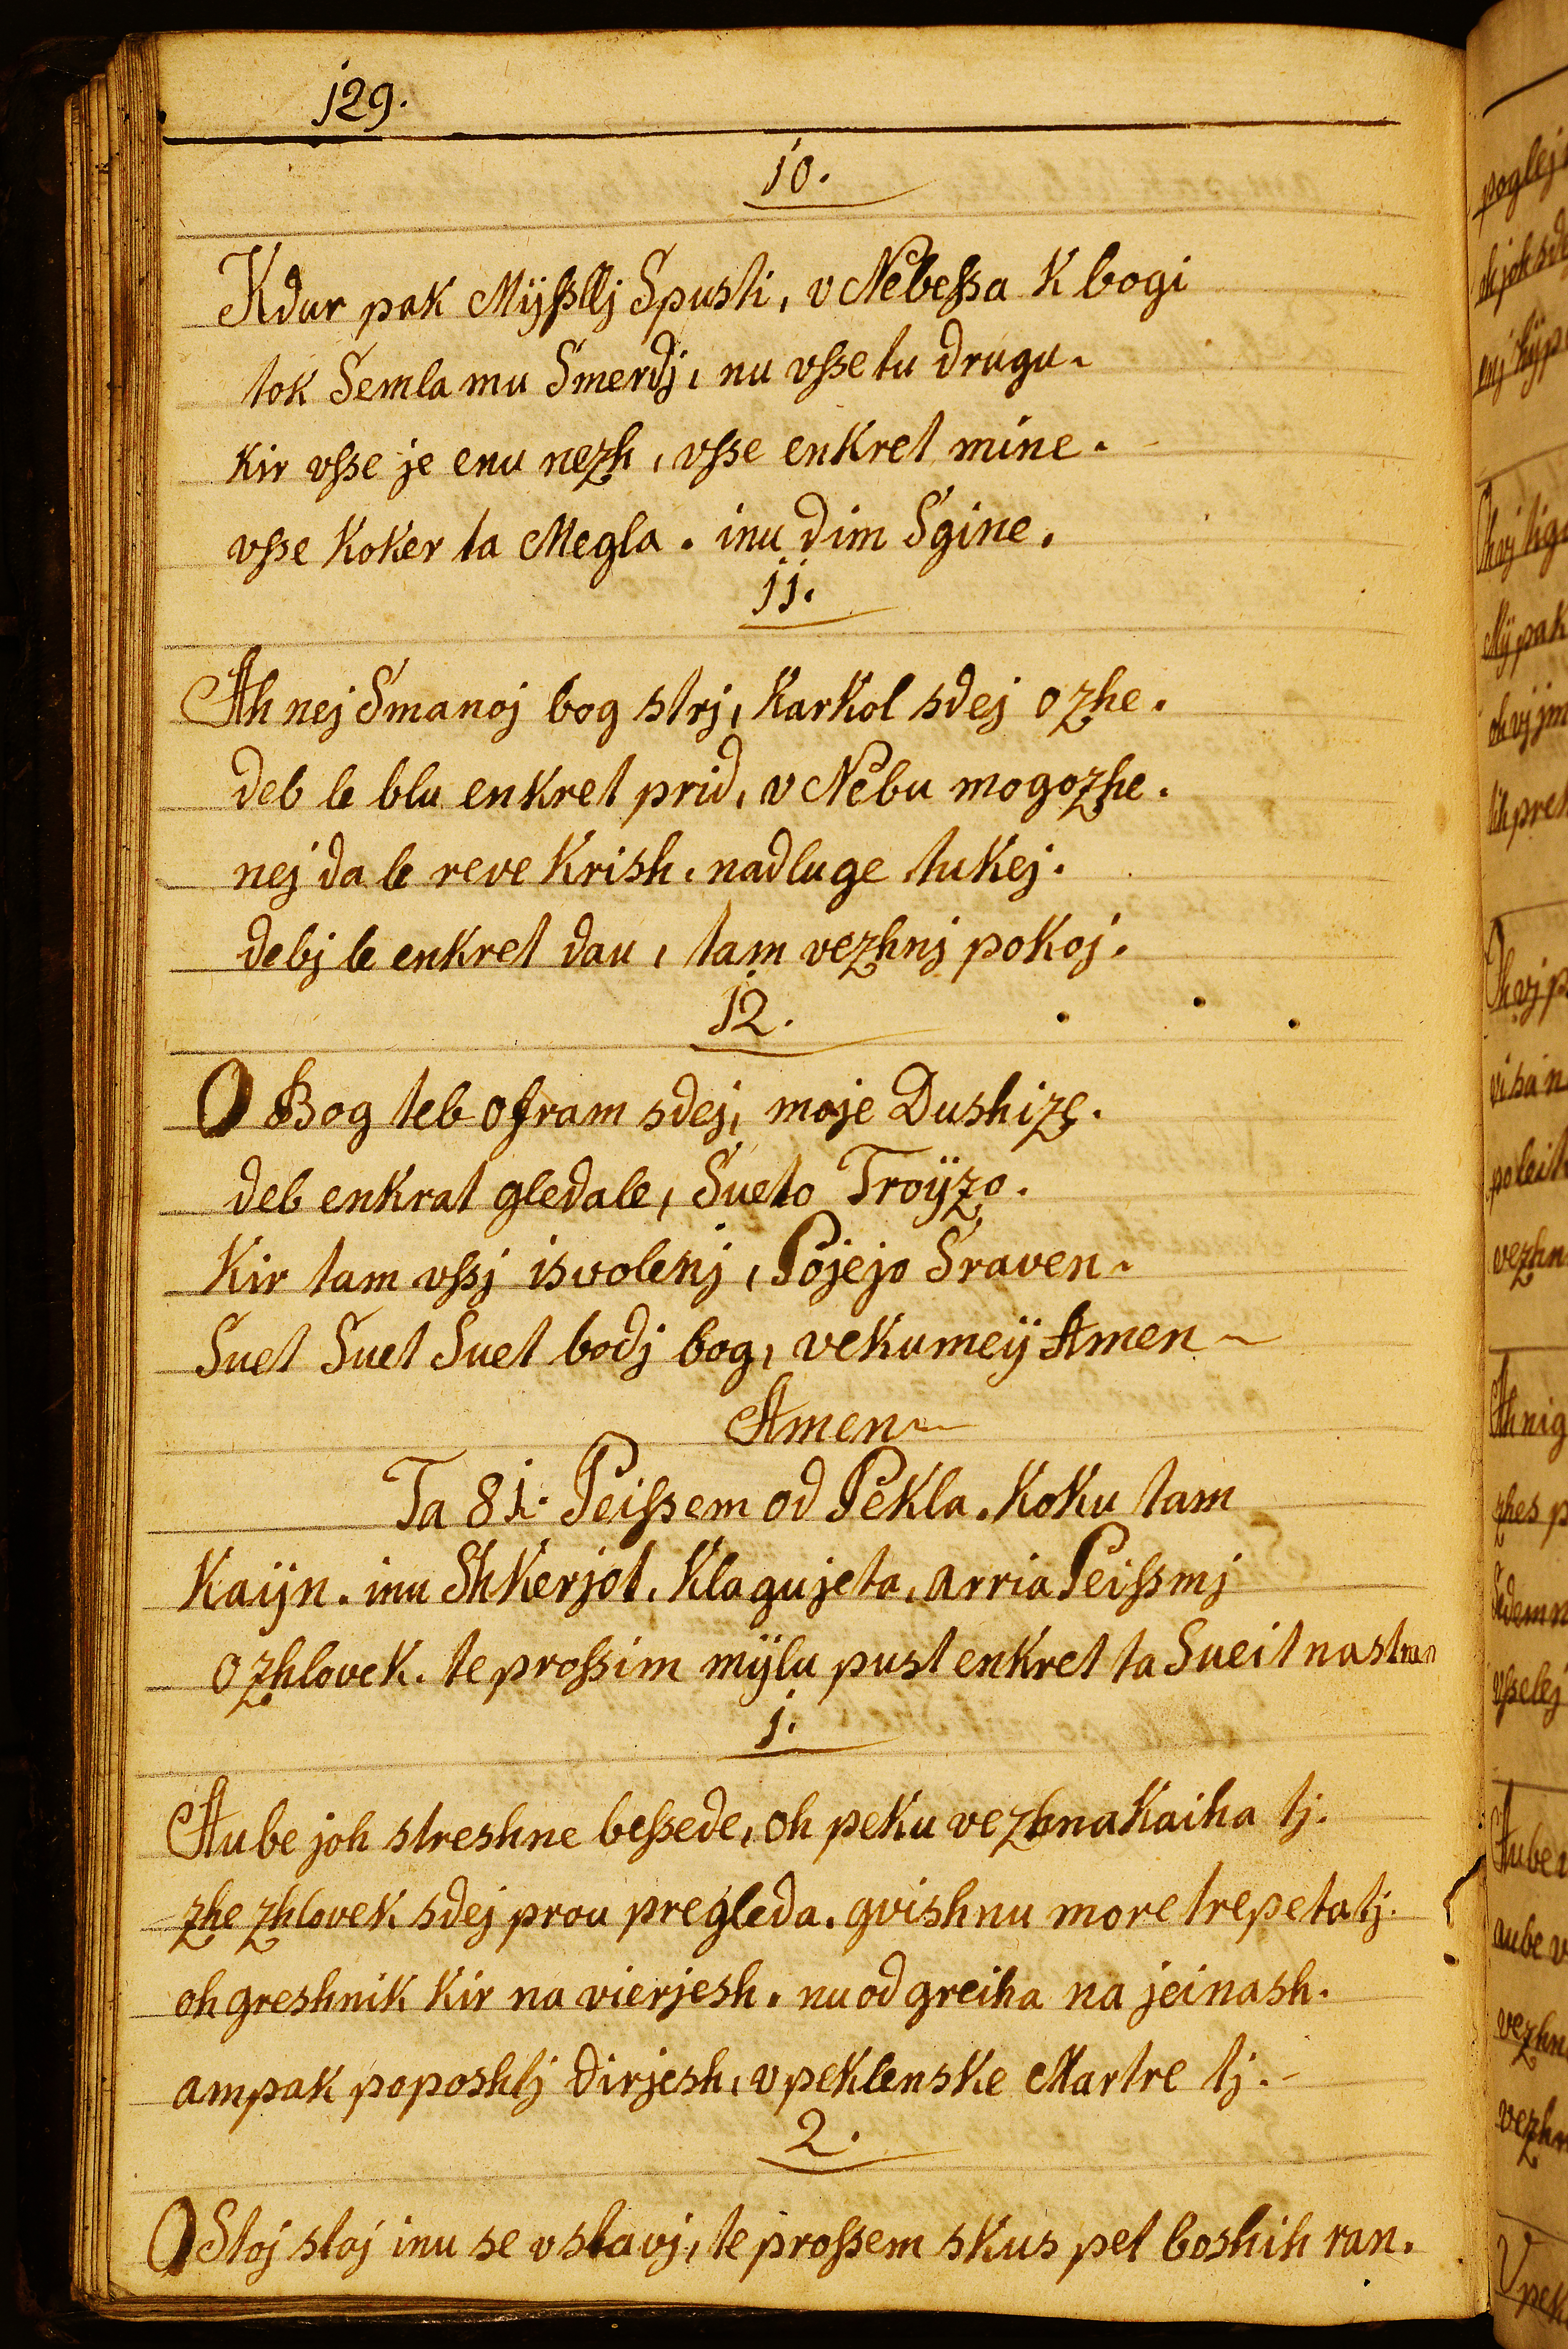 129.
10.
Kdur pak Mÿßllj Spusti, v Nebeßa K bogi
tok Semla mu Smerdj, nu vsse tu drugu.
Kir vsse je enu nezh, vsse enkret mine.
vsse Koker ta Megla. inu dim Sgine.
11.
Ah nej Smanoj bog strj, Karkol sdej ozhe.
deb le blu enkret prid, v Nebu mogozhe.
nej da le reve Krish, nadluge tukej.
debj le enkret dau, tam vezhnj pokoj.
12.
O Bog teb ofram sdej, moje Dushize.
deb enkrat gledale, Sueto Troÿzo.
Kir tam vssj isvolenj, Pojejo Sraven.
Suet Suet Suet bodj bog, vekumeÿ Amen
Amen
Ta 81. Peißem od Pekla. Koku tam
Kaÿn. inu ShKerjot. Klagujeta, arria Peißmj
o zhlovek. te proßim mÿlu pust enkret ta Sueit na
1.
Aube joh streshne beßede, oh peku vezhna Kaiha tj.
zhe zhlovek sdej prou pregleda. gvishnu more trepetatj.
oh greshnik Kir na vierjesh. nu od greiha na jeinash.
ampak poposhtj dirjesh, v peklenske Martre tj.
2.
O Stoj stoj inu se vstavj, te proßem skus pet boshih ran.
poglej
Mÿ pak
vezhn
Ah nig
Aube
aube v
vezhn
V